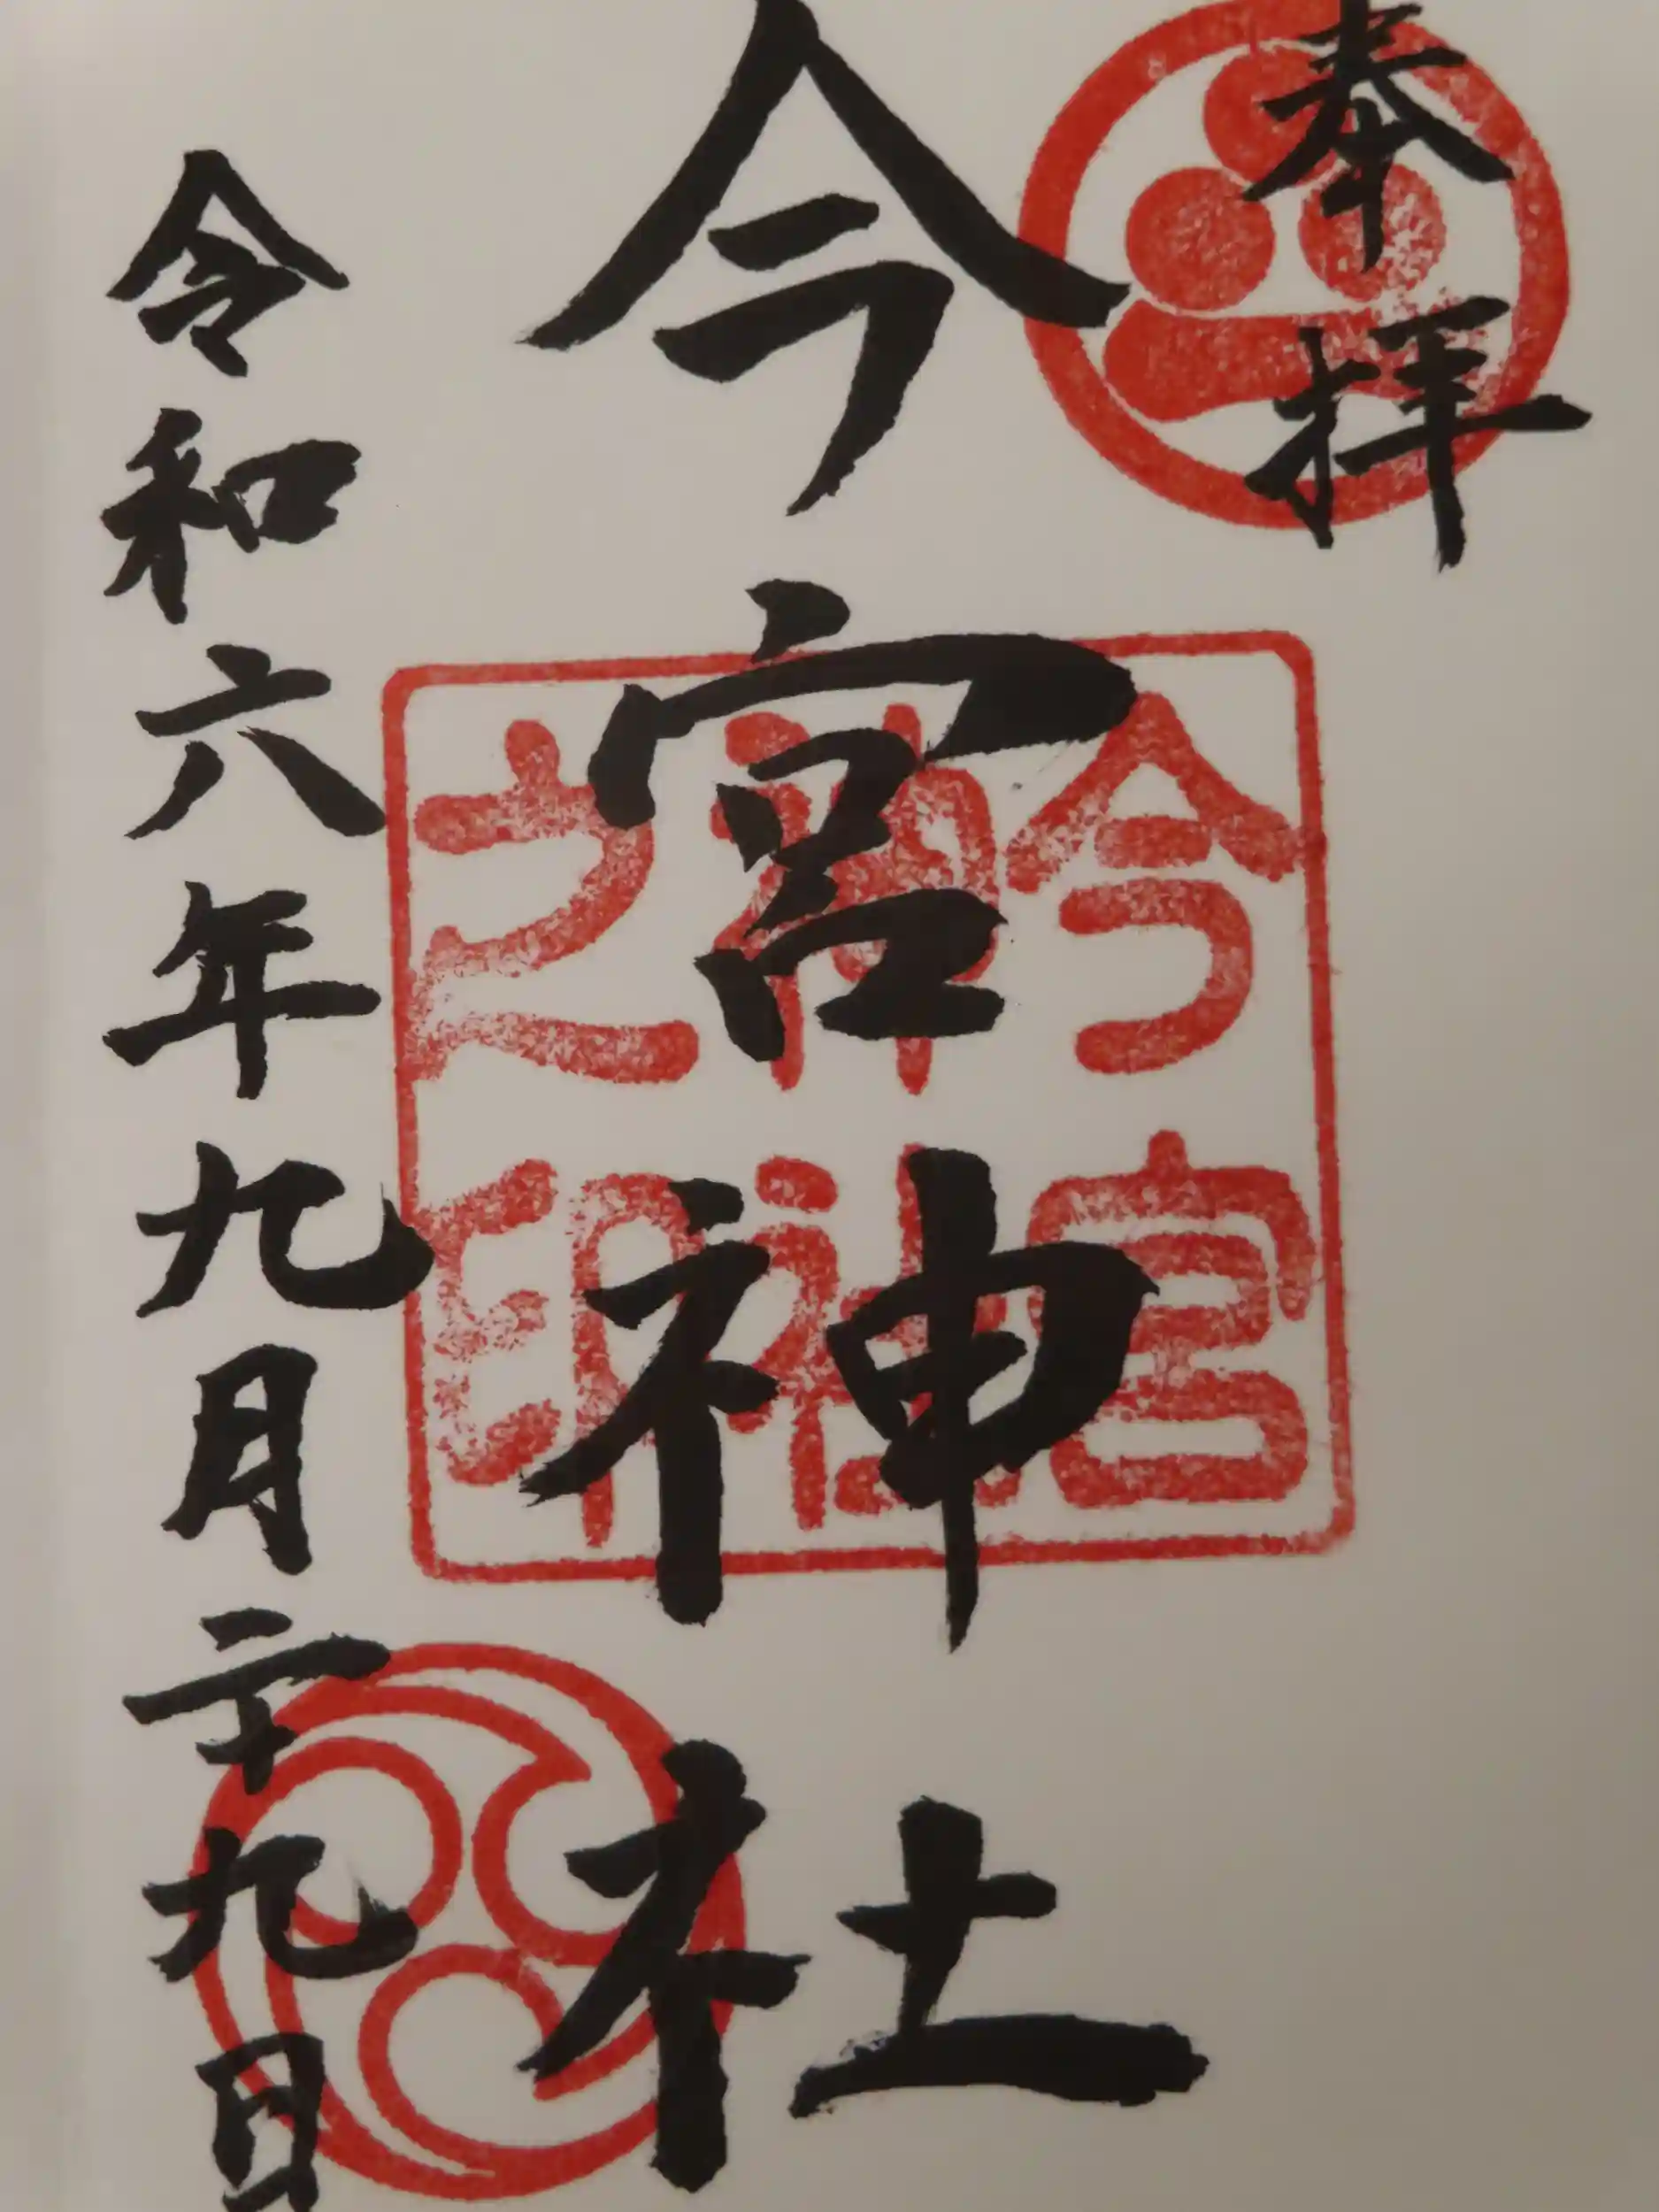 奉拝
今宮神社
今宮
神社
之印
令和六年九月二十九日